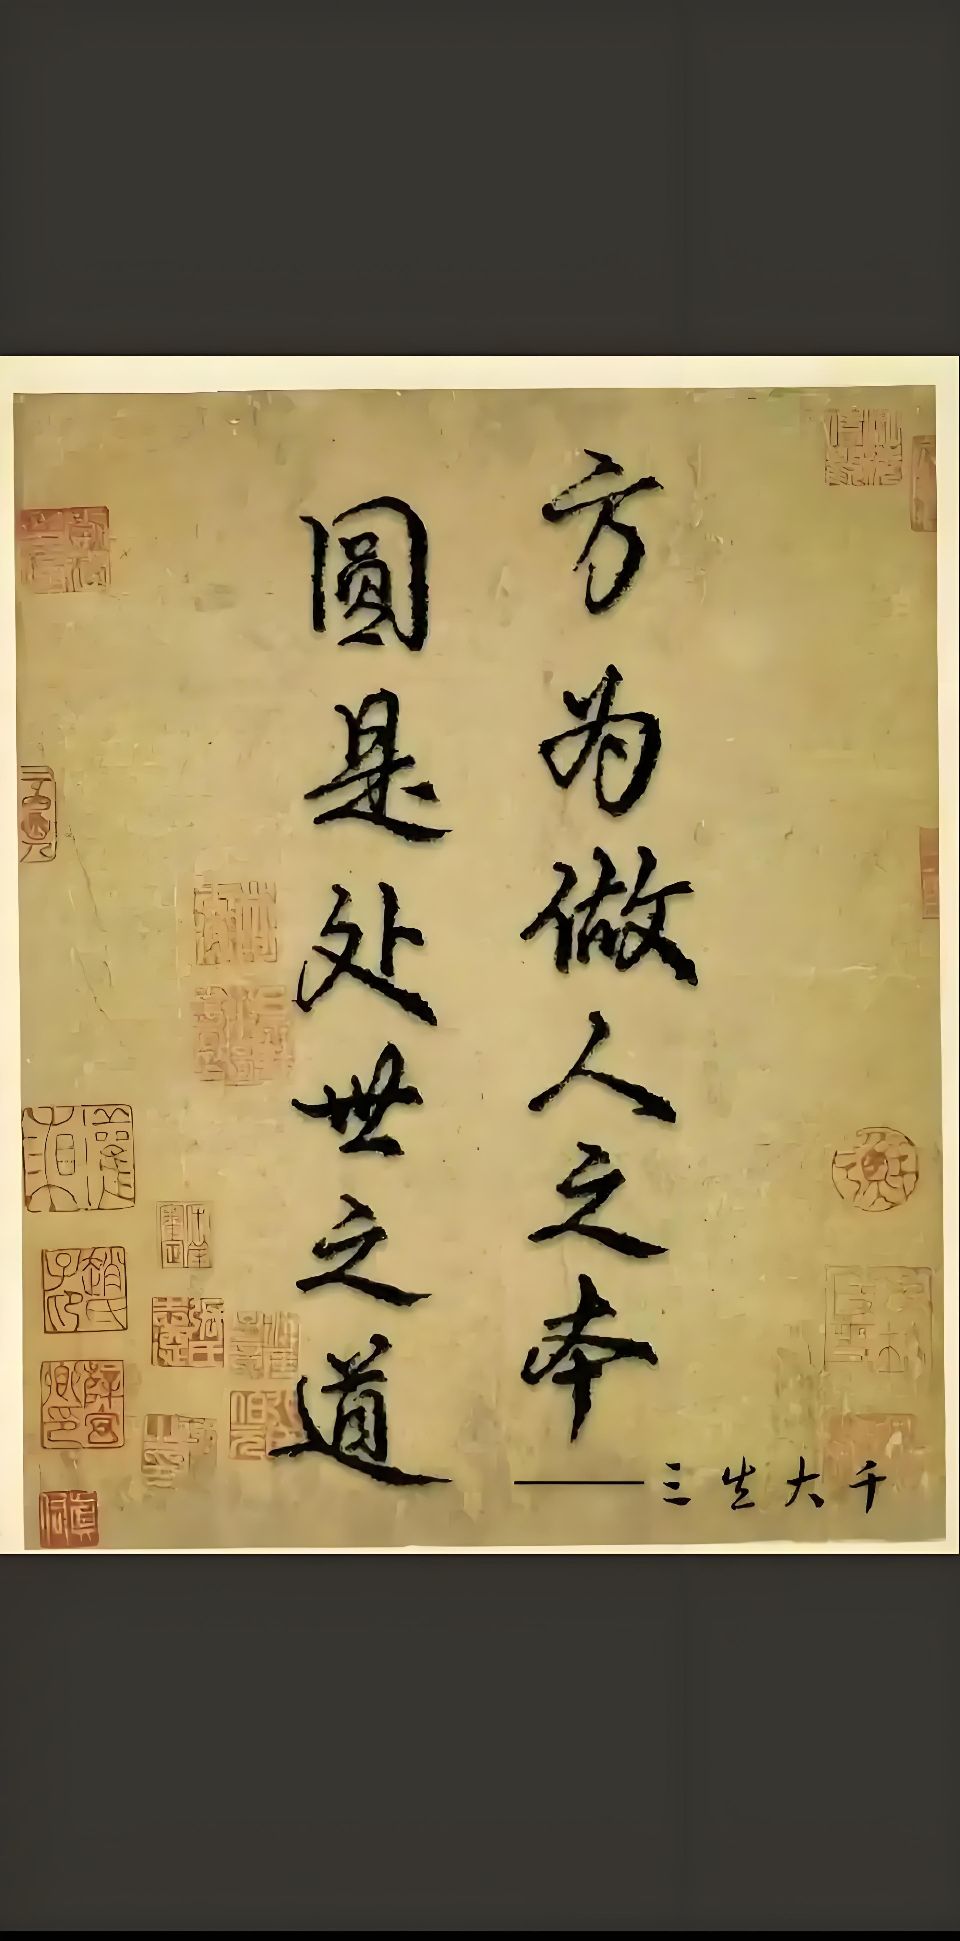 方为做人之本
圆是处世之道
——三生大千